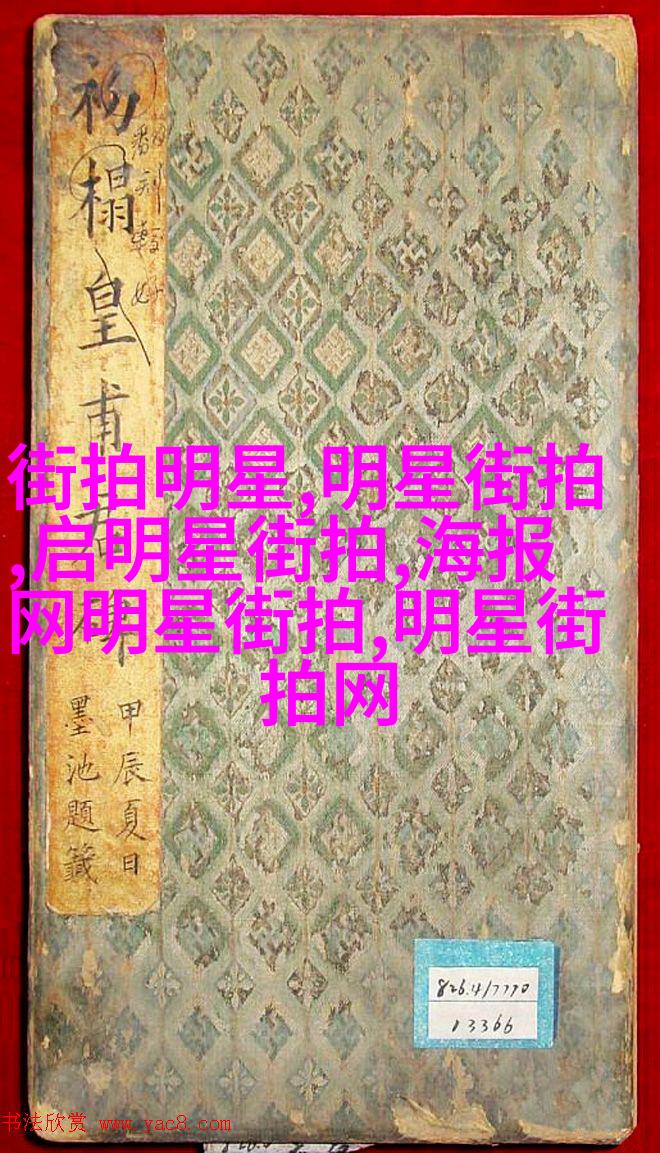 初榻皇甫君碑
翻刻較好
甲辰夏日
墨池題籤
街拍明星,明星街拍
,启明星街拍,海报
网明星街拍,明星街
拍网
826.4/7790
13366
书法欣赏 www.yac8.com